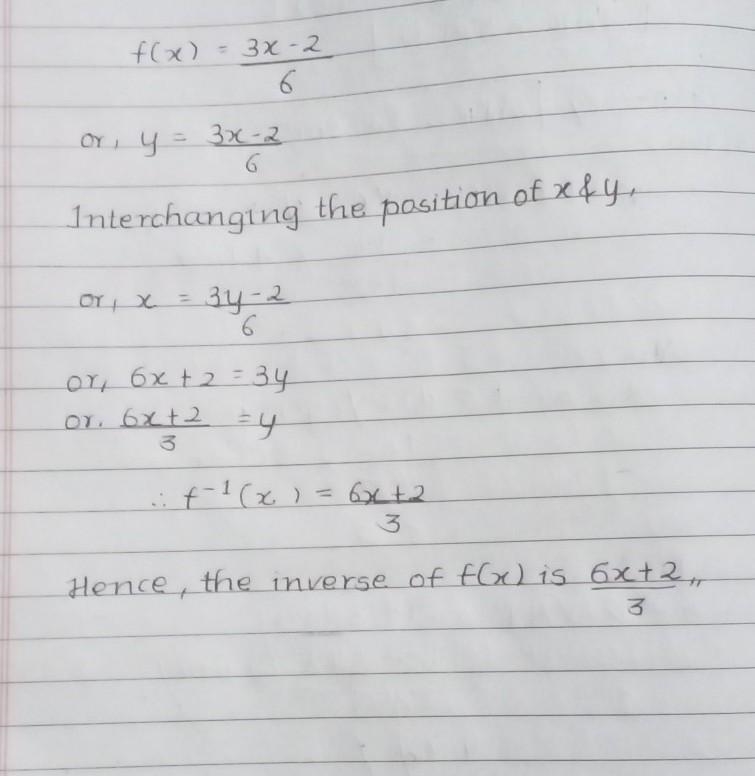 f(x) = 3x-2/6
or, y = 3x-2/6
Interchanging the position of x & y,
or, x = 3y-2/6
or, 6x + 2 = 3y
or. 6x+2/3 = y
∴ f⁻¹(x) = 6x+2/3
Hence, the inverse of f(x) is 6x+2/3 ,,